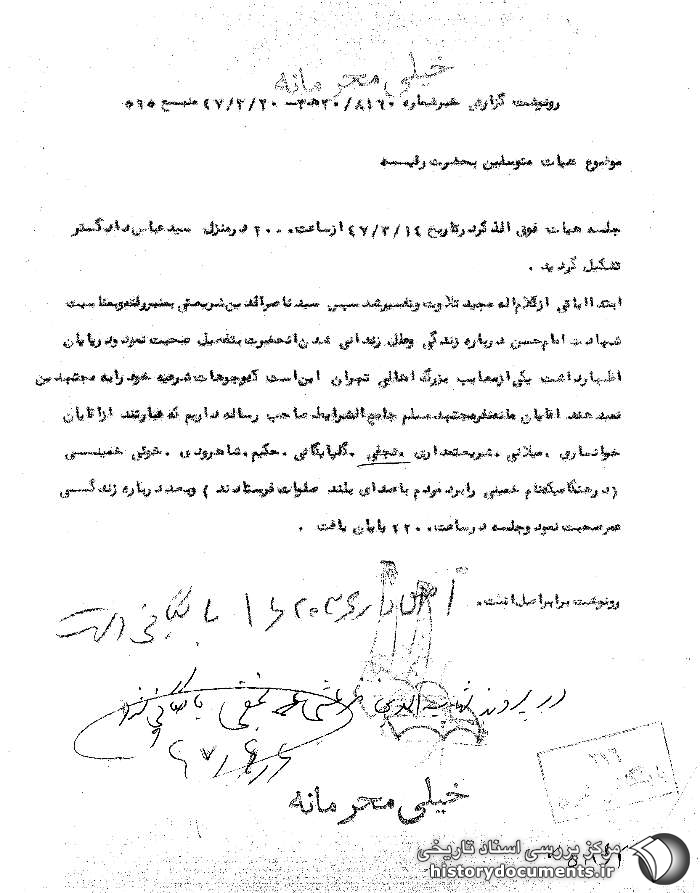 خیلی محرمانه
رونوشت گزارش خبر شماره ۸۱۶۰/ ۳۰ه۲۰ – ۴۷/۳/۲۰ منبع ۵۹۵
موضوع هیات متوسلین بحضرت رقیسه
جلسه هیات فوق الذکر در تاریخ ۴۷/۳/۱۴ از ساعت ۲۰۰۰ در منزل سید عباس دادگستر
تشکیل گردید .
ابتدا ایاتی از کلام اله مجید تلاوت و تفسیر شد سپس سید ناصرالدین شریعتی بمنبر رفته و بمناسبت
شهادت امام حسن درباره زندگی وعلل زندانی شدن آنحضرت بتفصیل صحبت نمود و در پایان
اظهار داشت یکی از معایب بزرگ اهالی تهران این است که وجوهات شرعیه خود را به مجتهدین
نمیدهند اقایان ما نه نفر مجتهد مسلم جامع الشرایط صاحب رساله داریم که عبارتند از اقایان
خوانساری . میلانی . شریعتمداری . نجفی . گلپایگانی . حکیم . شاهرودی . خوئی خمینسی
( در هنگامیکه نام خمینی را برد مردم با صدای بلند صلوات فرستادند ) و بعد درباره زندگسی
عمر صحبت نمود و جلسه در ساعت ۲۲۰۰ پایان یافت .
رونوشت برابر اصل است .
بایگانی است
در پرونده شهاب الدین مرعشی نجفی بایگانی شود
خیلی محرمانه
مرکز بررسی اسناد تاریخی
historydocuments.ir